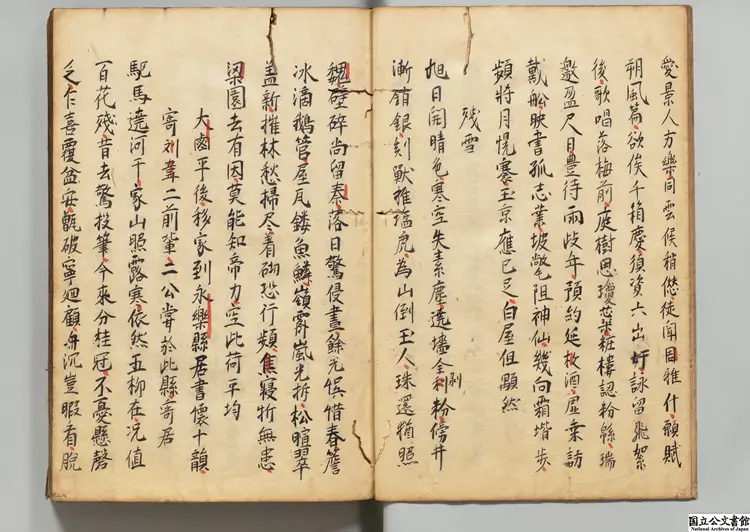 愛景人方樂同雲候稍愆徒聞目雅什願賦
朔風篇欲俟千箱慶須資六出妍詠留飛絮
後歌唱落梅前庭樹思瓊蕊粧樓認粉緜瑞
邀盈尺日豊待兩歧年預約延枚酒虚乗訪
戴舩映書孤志業坡氅阻神仙幾向霜堦歩
頻將月幌褰玉京應已足白屋但顒然
残雪
旭日開晴色寒空失素塵遶墻全剥粉傍井
漸銷銀刻獣摧塩虎為山倒玉人珠還猶照
魏璧碎尚留秦落日驚侵晝餘光悞惜春簷
冰滴鵝管屋瓦鏤魚鱗嶺霽嵐光拆松暄翠
盖新摧林愁掃尽着砌恐行頻焦寢忻無患
梁園去有因莫能知帝力空此荷平均
大鹵平後移家到永樂縣居書懐十韻
寄刘韋二前輩二公甞於此縣寄居
駈馬遶河干家山照露寒依然五柳在况值
百花殘昔去驚投筆今來分桂冠不憂懸磬
乏乍喜覆盆安甑破寧廻顧舟沉豈暇看脱
国立公文書館
National Archives of Japan